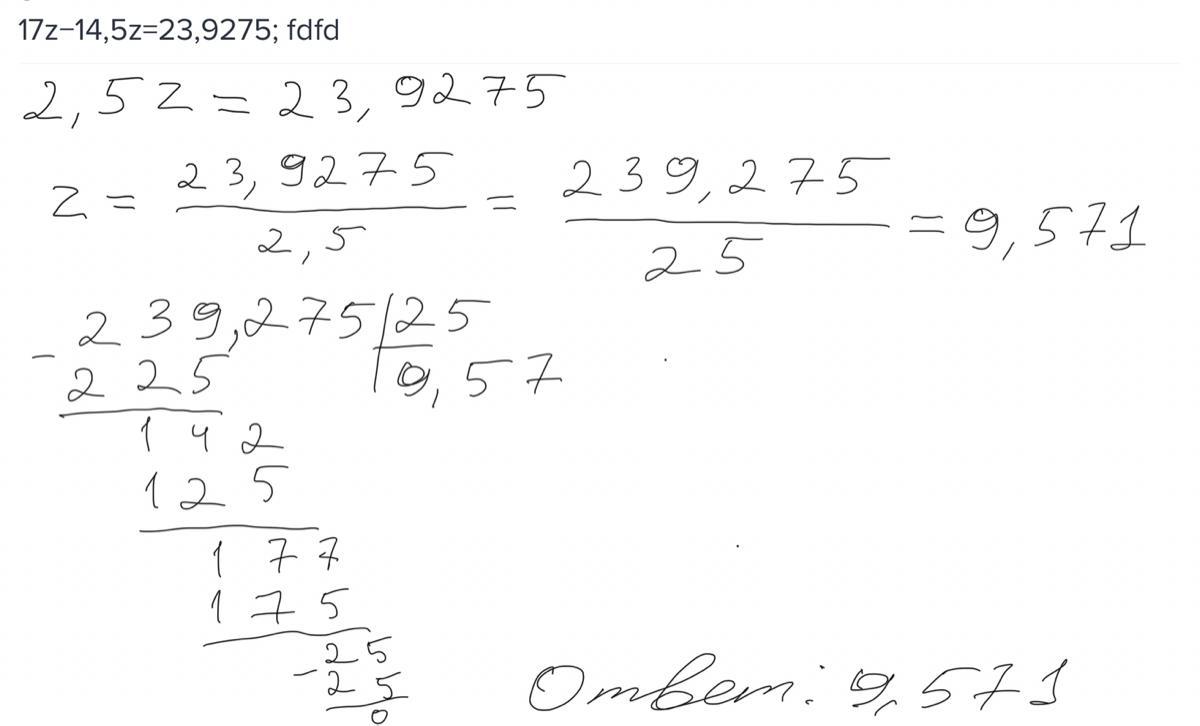 17z−14,5z=23,9275; fdfd
2,5z=23,9275
z = 23,9275/2,5 = 239,275/25 = 9,571
239,275 | 25
- 225 | 9,57
142
125
177
175
25
- 25
0
Ответ: 9,571